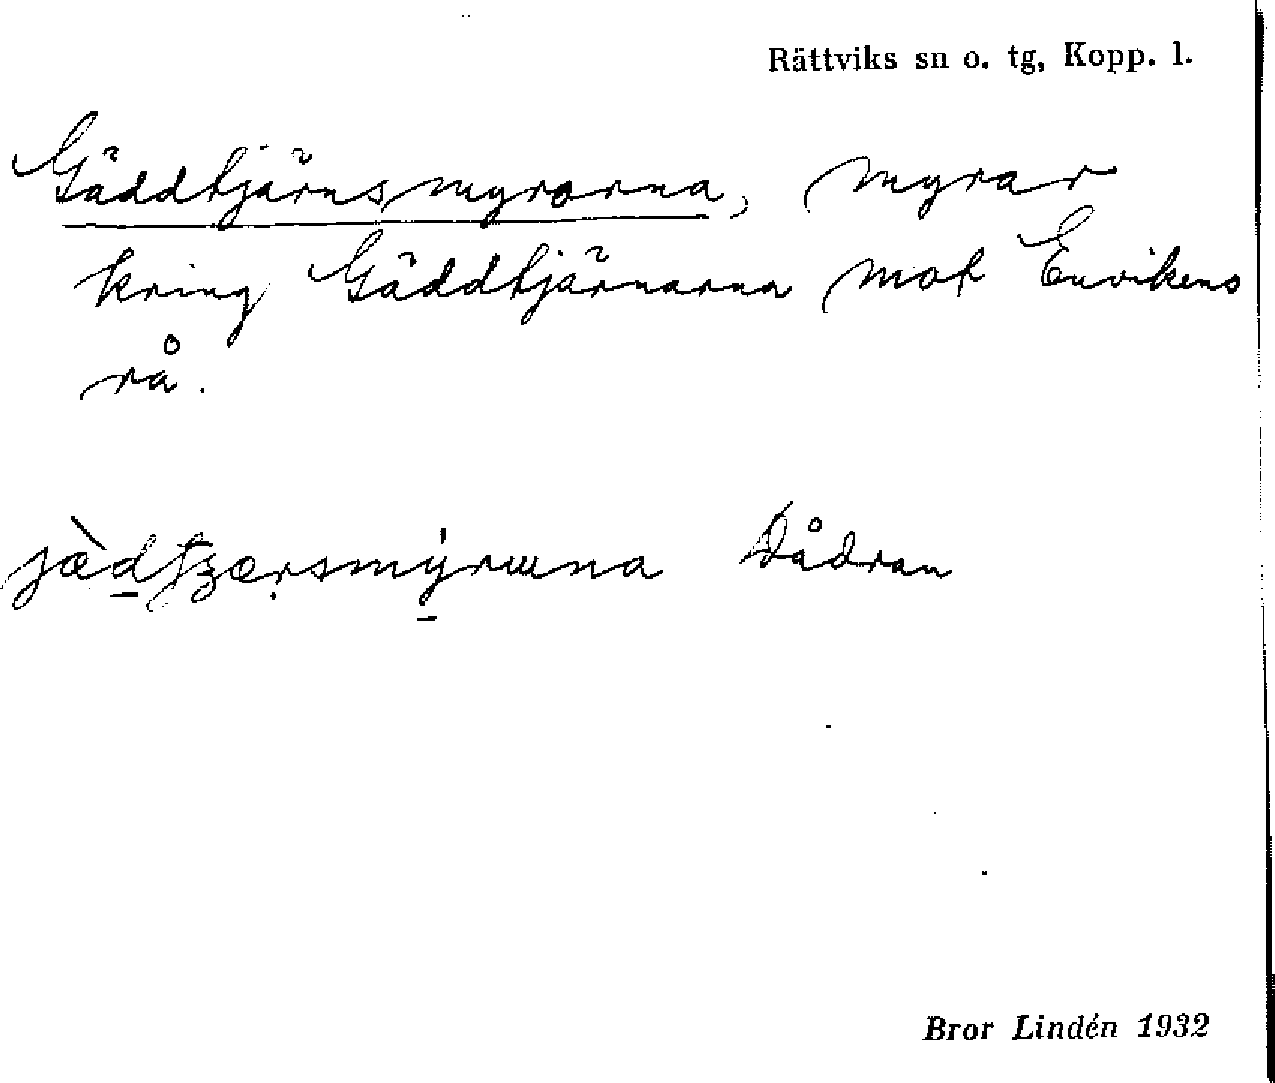 Rättviks sn o. tg, Kopp. l.
Gäddtjärnsmyrorna, myrar
kring Gäddtjärnarna mot Envikens
rå.
Dådran
Bror Lindén 1932